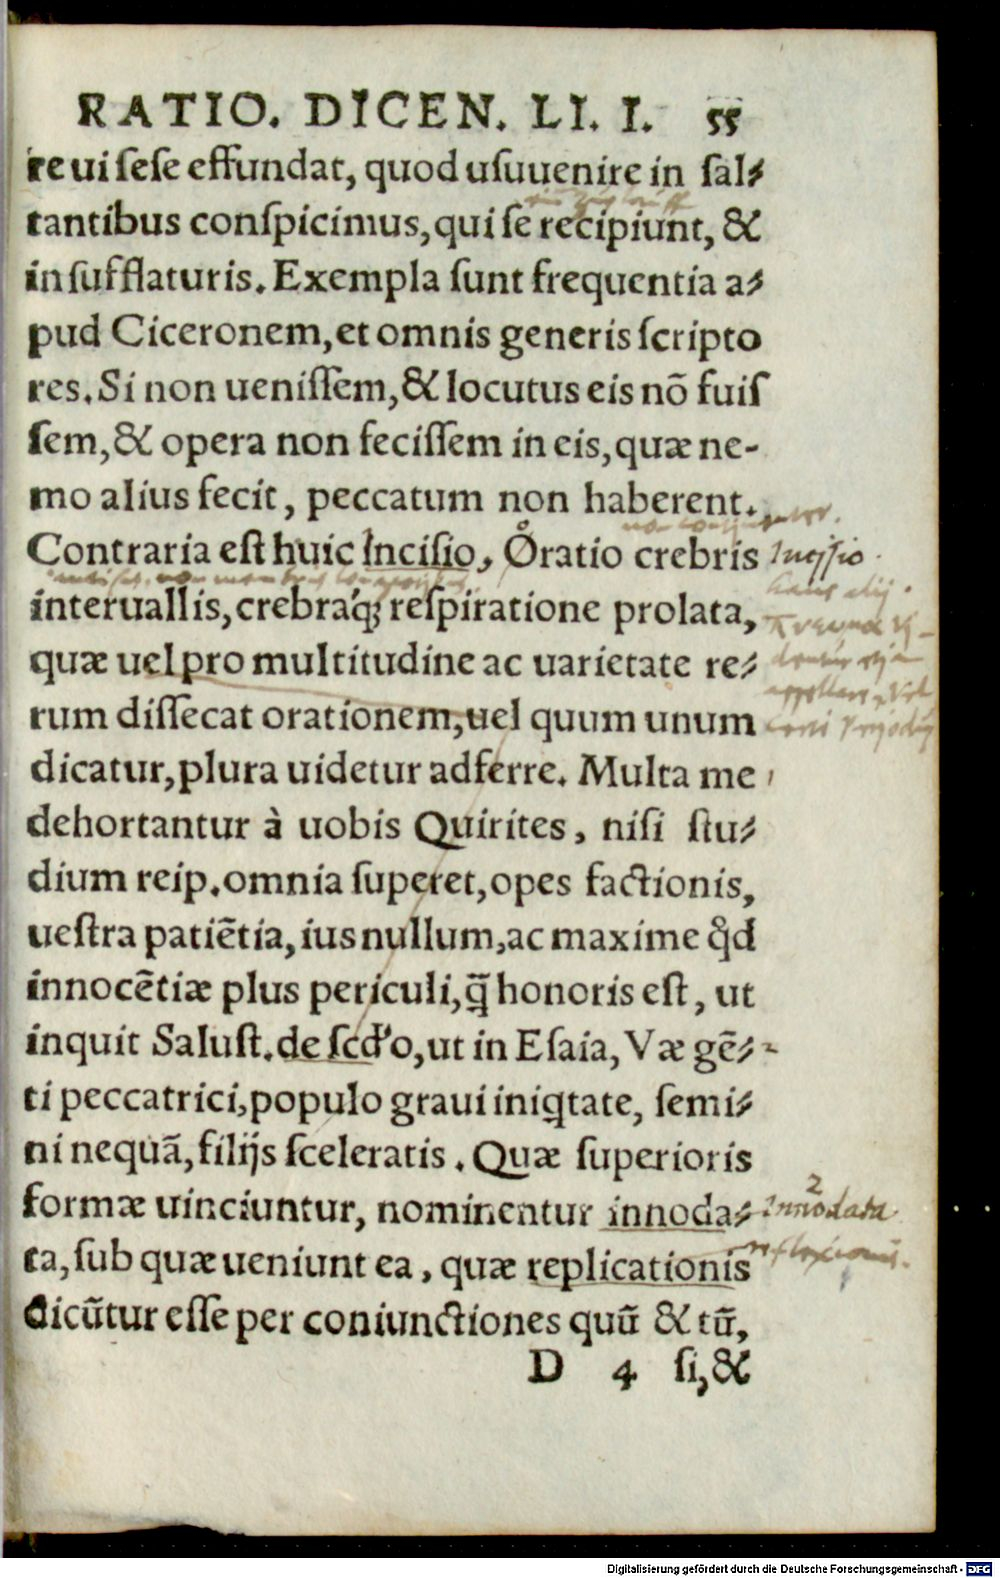 RATIO. DICEN. LI. I. 55
re ui ſeſe effundat, quod uſuuenire in ſal⸗
tantibus conſpicimus, qui ſe recipiunt, &
in ſufflaturis. Exempla ſunt frequentia a⸗
pud Ciceronem, et omnis generis ſcripto
res. Si non ueniſſem, & locutus eis nõ fuiſ
ſem, & opera non feciſſem in eis, quæ ne-
mo alius fecit, peccatum non haberent.
Contraria eſt huic Inciſio, Oratio crebris
Incisio.
interuallis, crebraq́; reſpiratione prolata,
quæ uel pro multitudine ac uarietate re⸗
rum diſſecat orationem, uel quum unum
dicatur, plura uidetur adferre. Multa me
dehortantur à uobis Quirites, niſi ſtu⸗
dium reip. omnia ſuperet, opes factionis,
ueſtra patiẽtia, ius nullum, ac maxime qđ
innocẽtiæ plus periculi, q̃ honoris eſt, ut
inquit Saluſt. de ſcd'o, ut in Eſaia, Væ gẽ⸗
ti peccatrici, populo graui iniqtate, ſemi⸗
ni nequã, filijs ſceleratis. Quæ ſuperioris
formæ uinciuntur, nominentur innoda⸗
2
Innodata
ta, ſub quæ ueniunt ea, quæ replicationis
reflexionis.
dicũtur eſſe per coniunctiones quũ & tũ,
D 4 ſi, &
Digitalisierung gefördert durch die Deutsche Forschungsgemeinschaft - DFG